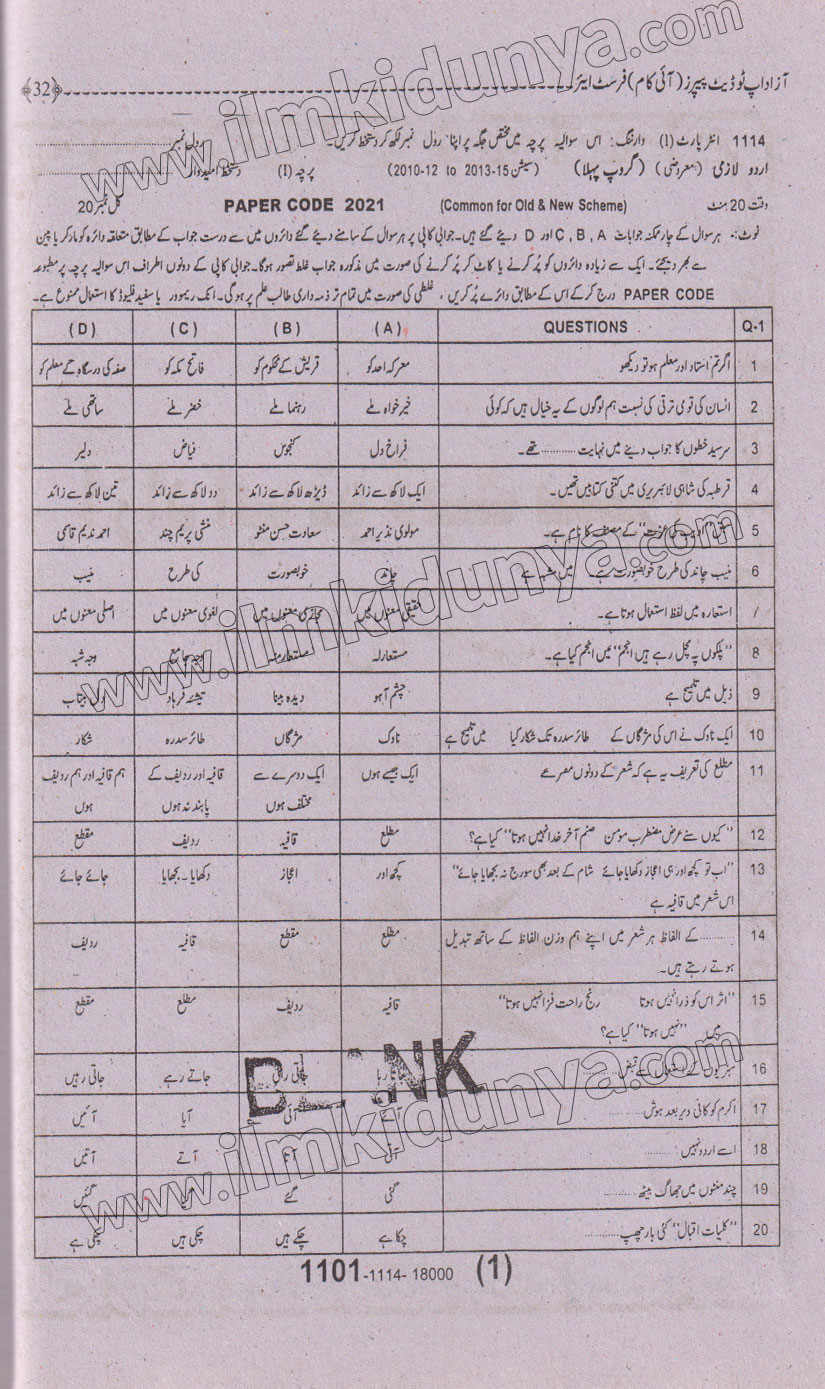 آزاد اپ ٹو ڈیٹ پیپرز (آئی کام) فرسٹ ایئر ﴿32﴾
1114 انٹر پارٹ (I) وارننگ : اس سوالیہ پرچہ میں مختص جگہ پر اپنا رول نمبر لکھ کر دستخط کریں۔ رول نمبر
اردو لازمی (معروضی) (گروپ پہلا) (سیشن 15-2013 to 2010-12) پرچہ (I) دستخط امیدوار
وقت 20 منٹ (Common for Old & New Scheme) PAPER CODE 2021 کل نمبر 20
نوٹ:- ہر سوال کے چار ممکنہ جوابات C, B, A اور D دیئے گئے ہیں۔ جوابی کاپی پر ہر سوال کے سامنے دیئے گئے دائروں میں سے درست جواب کے مطابق متعلقہ دائرہ کو مارکر یا پین
سے بھر دیجئے۔ ایک سے زیادہ دائروں کو پُر کرنے یا کاٹ کر پُر کرنے کی صورت میں مذکورہ جواب غلط تصور ہوگا۔ جوابی کاپی کے دونوں اطراف اس سوالیہ پرچہ پر مطبوعہ
PAPER CODE درج کر کے اس کے مطابق دائرے پُر کریں، غلطی کی صورت میں تمام تر ذمہ داری طالب علم پر ہوگی۔ انک ریموور یا سفید فلیوڈ کا استعمال ممنوع ہے۔
Q-1 QUESTIONS (A) (B) (C) (D)
1 اگر تم استاد اور معلم ہو تو دیکھو معرکہ احد کو قریش کے محکوم کو فاتح مکہ کو صفہ کی درسگاہ کے معلم کو
2 انسان کی قومی ترقی کی نسبت ہم لوگوں کے یہ خیال ہیں کہ کوئی خیر خواہ ملے رہنما ملے خضر ملے ساتھی ملے
3 سرسید خطوں کا جواب دینے میں نہایت ............ تھے۔ فراخ دل کنجوس فیاض دلیر
4 قرطبہ کی شاہی لائبریری میں کتنی کتابیں تھیں۔ ایک لاکھ سے زائد ڈیڑھ لاکھ سے زائد دو لاکھ سے زائد تین لاکھ سے زائد
5 سبق "ادیب کی عزت" کے مصنف کا نام ہے۔ مولوی نذیر احمد سعادت حسن منٹو منشی پریم چند احمد ندیم قاسمی
6 منیب چاند کی طرح خوبصورت ہے۔ میں مشبہ ہے چاند خوبصورت کی طرح منیب
7 استعارہ میں لفظ استعمال ہوتا ہے۔ حقیقی معنوں میں مجازی معنوں میں لغوی معنوں میں اصلی معنوں میں
8 "پلکوں پہ مچل رہے ہیں انجم" میں انجم کیا ہے۔ مستعار لہ مستعار منہ وجہ جامع وجہ شبہ
9 ذیل میں تلمیح ہے چشم آہو دیدہ بینا تیشئہ فرہاد دل بیتاب
10 ایک ناوک نے اس کی مژگاں کے طائر سدرہ تک شکار کیا میں تلمیح ہے ناوک مژگاں طائر سدرہ شکار
11 مطلع کی تعریف یہ ہے کہ شعر کے دونوں مصرعے ایک جیسے ہوں ایک دوسرے سے قافیہ اور ردیف کے ہم قافیہ اور ہم ردیف
مختلف ہوں پابند نہ ہوں ہوں
12 "کیوں سنے عرض مضطرب مومن صنم آخر خدا نہیں ہوتا" کیا ہے؟ مطلع قافیہ ردیف مقطع
13 "اب تو کچھ اور ہی اعجاز دکھایا جائے شام کے بعد بھی سورج نہ بجھایا جائے" کچھ اور اعجاز دکھایا ۔ بجھایا جائے جائے
اس شعر میں قافیہ ہے
14 ............ کے الفاظ ہر شعر میں اپنے ہم وزن الفاظ کے ساتھ تبدیل مطلع مقطع قافیہ ردیف
ہوتے رہتے ہیں۔
15 "اثر اس کو ذرا نہیں ہوتا رنج راحت فزا نہیں ہوتا" قافیہ ردیف مطلع مقطع
میں "نہیں ہوتا" کیا ہے؟
16 سبزیوں کے استعمال سے قبض ............ جاتا رہا جاتی رہی جاتے رہے جاتی رہیں
17 اکرم کو کافی دیر بعد ہوش ............ آئے آئی آیا آئیں
18 اسے اردو نہیں ............ آتی آتا آتے آتیں
19 چند منٹوں میں جھاگ بیٹھ ............ گئی گئے گیا گئیں
20 "کلیات اقبال" کئی بار چھپ ............ چکا ہے چکے ہیں چکی ہیں چکی ہے
BLANK
1101-1114- 18000 (1)
www.ilmkidunya.com
www.ilmkidunya.com
www.ilmkidunya.com